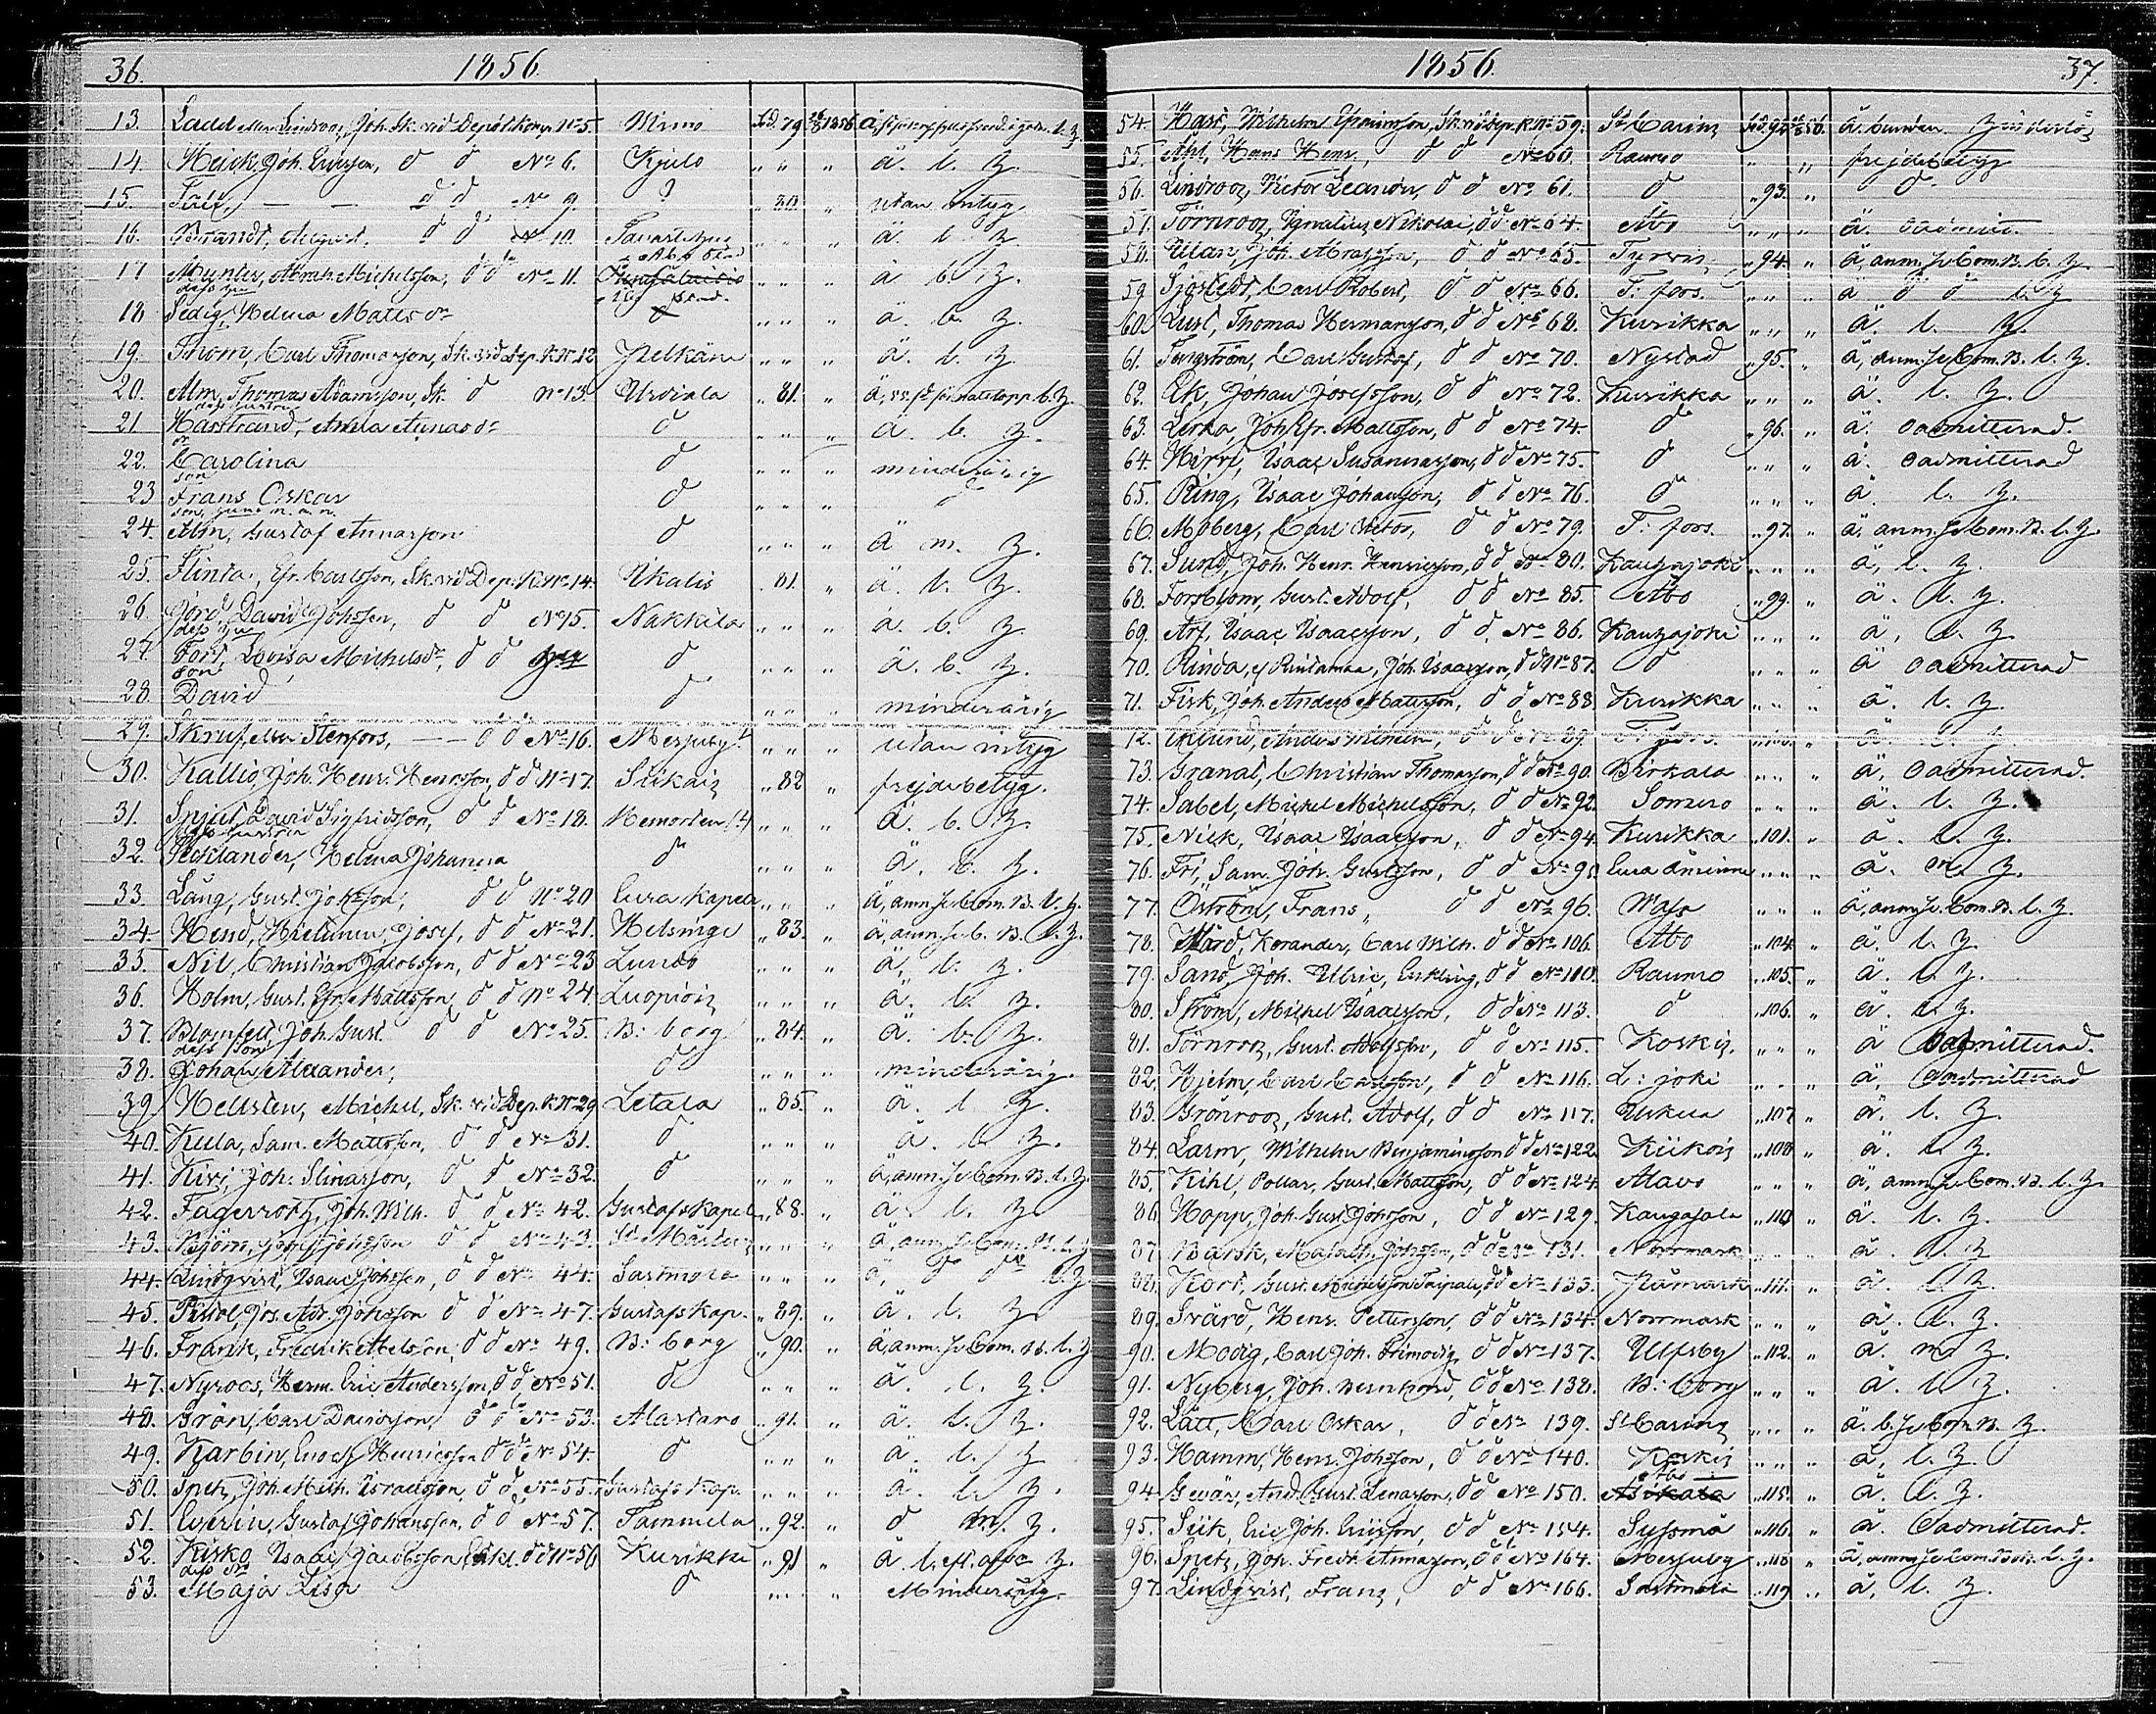 36. 1856.
13. Ladd eller Lindroos, Joh. Sk. vid Depôt komp. No 5. Virmo Ld. 79 1856
14. Heick, Joh. Ericsson, d d No 6. Kjulo " " " ä. l. z.
15. Falt, — — d d No 9. ? " 80. " utan intyg
16. Brandt, August, d d No 10. " " " ä. l. z.
17 Munter, Abrah. Michelsson, d d No 11. " " " ä b. z.
18 Sedig, Helena Matts dr d " " " ä. b. z.
19. Thom, Carl Thomasson, Sk. vid Dep. K. No 12 Pelkäne " " " ä. l. z.
20. Alm, Thomas Adamsson, Sk. d No 13 Urdiala " 81. "
dess hustru
21 Hasstrand, Anna Annas dr d " " " ä. b. z.
dr
22. Carolina d " " " minderårig
son
23 Frans Oskar d " " " d
24. Alm, Gustaf Annasson d " " " ä m. z.
25. Flinta, Efr. Carlsson, Sk. vid Dep. K. No 14. Ikalis " 81. " ä. l. z.
26. Gjord, David Johsson, d d No 15. Nakkila " " " ä. b. z.
27. Lovisa Michelsdr, d d d " " " ä. b. z.
son
28. David d " " " minderårig
29. Skruf, eller Stenfors, — — d d No 16. Mesuby? " " " utan intyg
30. Kallio, Joh. Henr. Henrsson, d d No 17. Siikais " 82 " frejdebetyg.
31. Spjut, David Sigfridsson, d d No 18. " " " ä. b. z.
dess hustru
32. Helena Johanna d " " " ä. b. z.
33. Lång, Gust. Johsson, d d No 20 Eura Kapell " " " ä, anm. Se Com. B. l. z.
34. Hend, Josef, d d No 21. Helsinge " 83. " ä, anm. Se C. B. l. z.
35. Nil, Christian Jacobsson, d d No 23 Lundo " " " ä, l. z.
36. Holm, Gust. Efr. Mattsson, d d No 24. Luopiois " " " ä. l. z.
37. Blomfelt, Joh. Gust. d d No 25. B: borg " 84. " ä. b. z.
dess son
38. Johan Alexander, d " " " minderårig.
39. Hellsten, Michel, Sk. vid Dep. K. No 29 Letala " 85. " ä. l. z.
40. Kula, Sam. Mattsson, d d No 31. d " " " ä. b. z.
41. Kivi, Joh: Stinasson, d d No 32. d " " " ä, anm. Se Com. B. l. z.
42. Fagerroth, Joh. Wilh. d d No 42. Gustafs Kapell " 88. " ä. l. z.
43. Björn, Josef Johsson d d No 43. St Mårtens " " " ä, anm. Se Com. B. l. z
44. Lindqvist, Isaac Johsson, d d No 44. Sastmola " " " ä, d do l. z
45. Pistol, Jos. Adr. Johsson d d No 47. Gustafs Kap. " 89. " ä. l. z
46. Frank, Fredrik Abelsson, d d No 49. B: borg " 90. " ä, anm. Se Com. B. l. z
47. Nyroos, Herm. Eric Andersson, d d No 51. d " " " ä. l. z.
48. Grön, Carl Davidsson, d d No 53. Alastaro " 91. " ä. l. z.
49. Karbin, Enoch Henricsson d d No 54. d " " " ä. l. z
50. Spets, Joh. Mich. Israelsson, d d No 55. Gustafs Kap. " " " ä. l. z.
51. Everin, Gustaf Johansson, d d No 57. Tammela " 92. " d m. z.
52. Kisko Isaac Jacobsson d d No 56 Kurikka " 91 "
dess dr
53. Maja Lisa d " " " Minderårig.
1856. 37.
54. Hast, Wilhelm d No 59. St Carins
55. Ahl, Hans Henr., d d No 60. Raumo " " frejdebetyg
56. Lindroos, Victor Leander, d d No 61. d " 93. " d
57. Törnroos, Ignatius Nikolai, d d No 64. Åbo " " " ä. oadmitt.
58. Ulan, Joh. Abrahsson, d d No 65. Tyrvis " 94. " ä, anm. Se Com. B. l. z.
59 Sjöstedt, Carl Robert, d d No 66. T: fors. " " " ä d d l. z
60. Lust, Thomas Hermansson, d d No 68. Kurikka " " " ä. l. z.
61. Tengström, Carl Gustaf, d d No 70. Nystad " 95. " ä, anm. Se Com. B. l. z.
62. Ek, Johan Josefsson, d d No 72. Kurikka " " " ä. l. z.
63. Leska, Joh. Efr. Mattsson, d d No 74. d " 96. " ä. oadmitterad.
64. Hirvi, Isaac Susannasson, d d No 75. d " " " ä. oadmitterad
65. Ring, Isaac Johansson, d d No 76. d " " " ä. l. z.
66. Moberg, Carl Victor, d d No 79. T: fors. " 97. " ä, anm. Se Com. B. l. z.
67. Sund, Joh. Henr. Henricsson, d d No 80. Kauhajoki " " " ä, l. z.
68. Forsblom, Gust. Adolf, d d No 85. Åbo " 99. " ä. l. z.
69. Arf, Isaac Isaacsson, d d No 86. Kauhajoki " " " ä, l. z.
70. Rinda, el. Rindamaa, Joh. Isaacsson, d d No 87. d " " " ä oadmitterad
71. Fisk, Joh. Anders Mattsson, d d No 88 Kurikka " " " ä. l. z.
72. Eklund, Anders d d No 89. T: fors.
73. Granat, Christian Thomasson, d d No 90. Birkala " " " ä, oadmitterad.
74. Sabel, Michel Michelsson, d d No 92. Somero " " " ä. l. z.
75. Nick, Isaac Isaacsson, d d No 94. Kurikka " 101. " ä. l. z.
76. Fri, Sam. Joh. Gustsson, d d No 95. Eura åminne " " " ä. m. z.
77. Öström, Frans, d d No 96. Wasa " " " ä, anm. Se Com. B. l. z.
78. Hård, Korander, Carl Wilh. d d No 106. Åbo " 104. " ä. l. z.
79. Sand, Joh. Ulric, Enkling, d d No 110. Raumo " 105. " ä. l. z.
80. Ström, Michel Isaacsson, d d No 113. d " 106. " ä. l. z.
81. Törnroos, Gust. Adolfsson, d d No 115. Koskis. " " " ä oadmitterad.
82. Hjelm, Carl Carlsson, d d No 116. L: joki " " " ä, oadmitterad
83. Grönroos, Gust. Adolf, d d No 117. Uskela " 107 " ä. l. z.
84. Larm, Wilhelm Benjaminsson d d No 122. Kiikois " 108 " ä. l. z.
85. Kihl, Pollar, Gust. Mattsson, d d No 124. Alavo " " " ä, anm. Se Com. B. l. z.
86. Hopp, Joh. Gust. Johsson, d d No 129. Kangasala " 110 " ä. l. z.
87. Barsk, Malach. Johsson, d d No 131. Norrmark " " " ä. l. z
88. Kort, Gust. Michelsson Taipale, d d No 133. Påmark " 111. " ä. l. z.
89. Svärd, Henr. Pettersson, d d No 134. Norrmark " " " ä. l. z.
90. Modig, Carl Joh. d d No 137. Ulfsby " 112. " ä. m z.
91. Nyberg, Joh. Bernhard, d d No 138. B: borg " " " ä. l. z.
92. Lätt, Carl Oskar, d d No 139. St Carins " " " ä. l. Se Com. B. z.
93. Hamm, Henr. Johsson, d d No 140. Koskis " " " ä, l. z.
94. Gevär, And. Gust. Lenasson, d d No 150. Åbo " 115. " ä. l. z.
95. Siik, Eric Joh. Ericsson, d d No 154. Sysmä " 116. " ä. oadmitterad.
96. Spets, Joh. Fredr. Annasson, d d No 164. Mesuby " 118 " ä, anm. Se Com. Bok. l. z.
97. Lindqvist, Frans, d d No 166. Sastmola " 119 " ä, l. z.